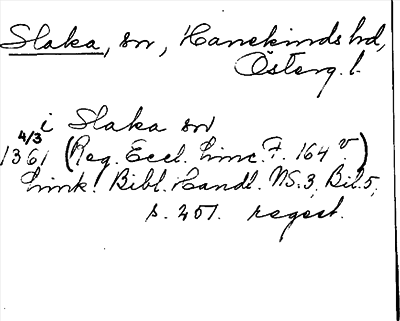 Slaka, sn, Hanekinds hd,
Österg. l.
i Slaka sn
4/3
1361 (Reg. Eccl. Linc. F. 164 v.)
Link. Bibl. Handl. NS. 3, Bil. 5,
s. 257. regest.